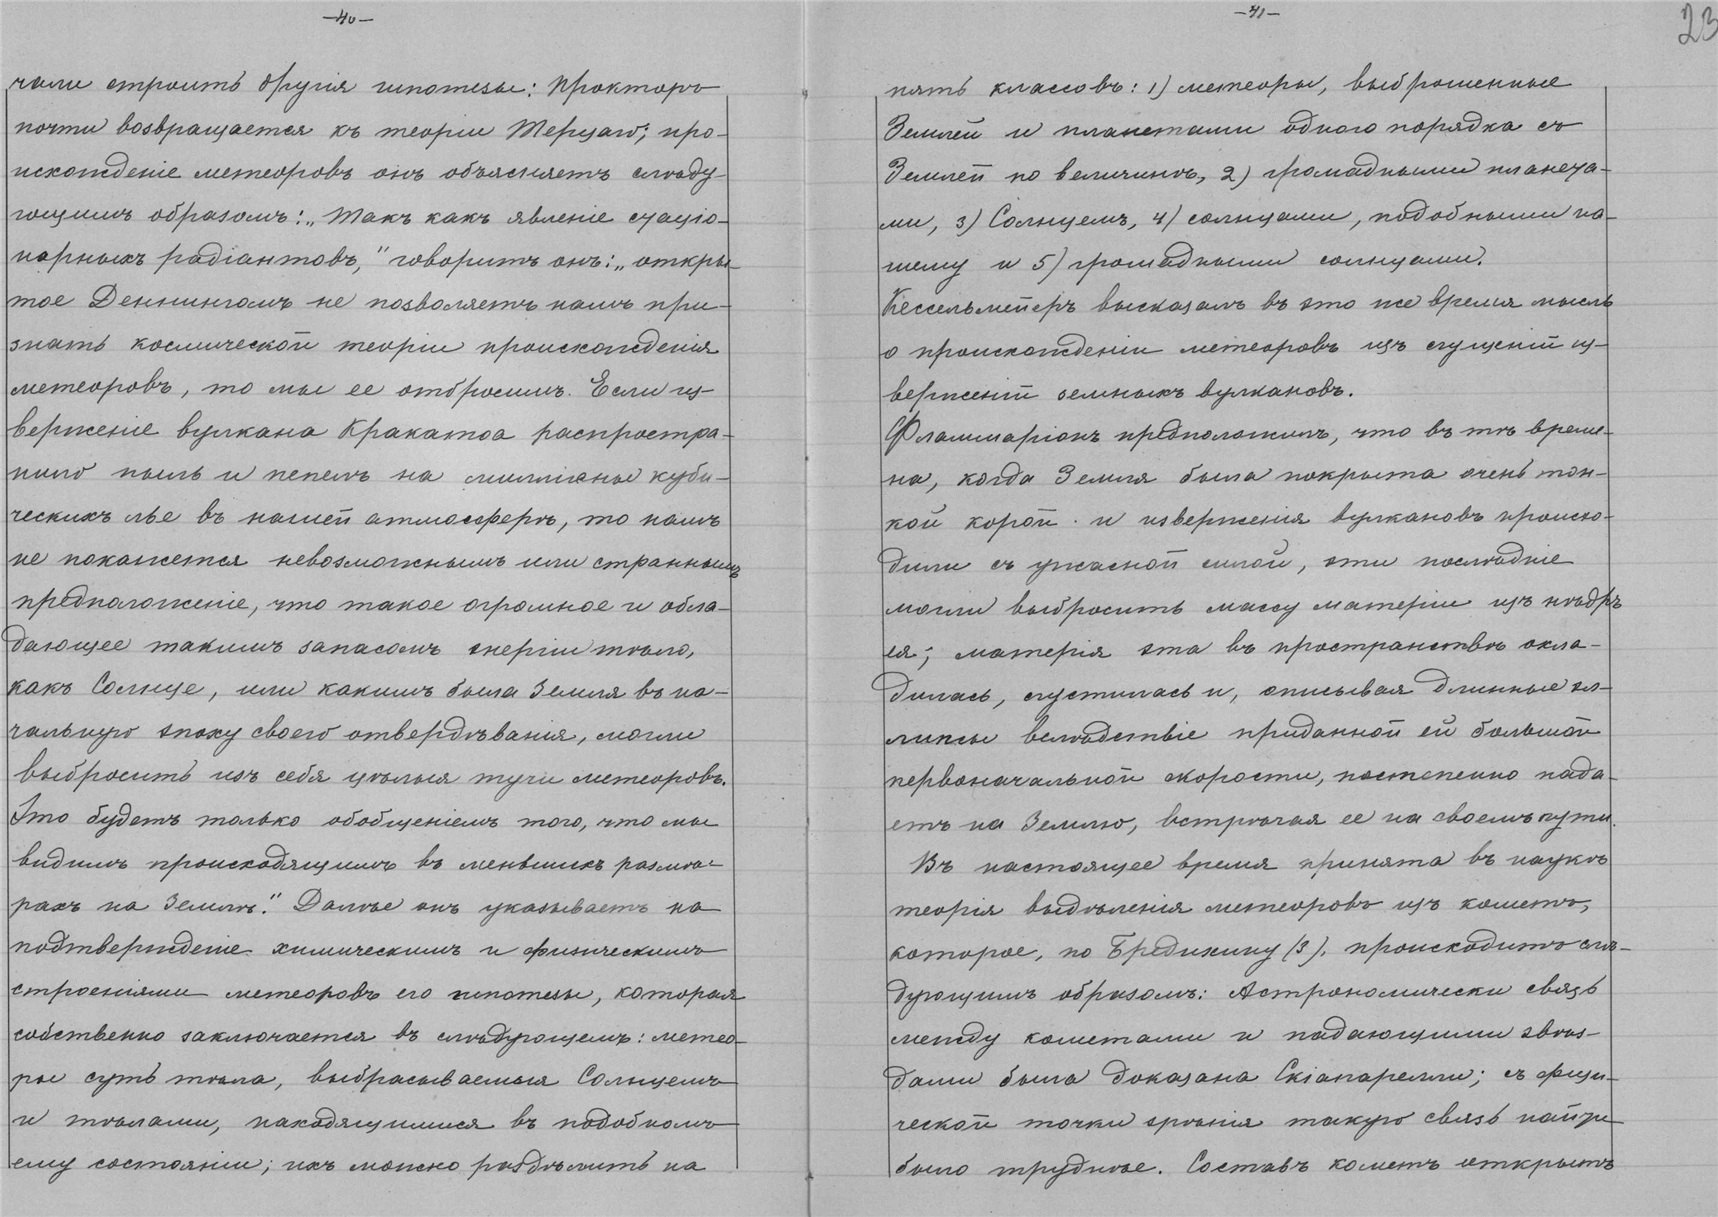 —40—
чали строить другія гипотезы: Прокторъ
почти возвращается къ теоріи Терцаго; про-
исхожденіе метеоровъ онъ объясняетъ слѣду-
ющимъ образомъ: „Такъ какъ явленіе стаціо-
нарныхъ радіантовъ,“ говоритъ онъ: „откры-
тое Деннингомъ не позволяетъ намъ при-
знать космической теоріи происхожденія
метеоровъ, то мы ее отбросимъ. Если из-
верженіе вулкана Кракатоа распростра-
нило пыль и пепелъ на милліоны куби-
ческихъ лье въ нашей атмосферѣ, то намъ
не покажется невозможнымъ или страннымъ
предположеніе, что такое огромное и обла-
дающее такимъ запасомъ энергіи тѣло,
какъ Солнце, или какимъ была Земля въ на-
чальную эпоху своего отвердѣванія, могли
выбросить изъ себя цѣлыя тучи метеоровъ.
Это будетъ только обобщеніемъ того, что мы
видимъ происходящимъ въ меньшихъ размѣ-
рахъ на Землѣ.“ Далѣе онъ указываетъ на
подтвержденіе химическимъ и физическимъ
строеніями метеоровъ его гипотезы, которая
собственно заключается въ слѣдующемъ: метео-
ры суть тѣла, выбрасываемыя Солнцемъ
и тѣлами, находящимися въ подобномъ
ему состояніи; ихъ можно раздѣлить на
—41—
23
пять классовъ: 1) метеоры, выброшенные
Землей и планетами одного порядка съ
Землей по величинѣ, 2) громадными планета-
ми, 3) Солнцемъ, 4) солнцами, подобными на-
шему и 5) громадными солнцами.
Кессельмейеръ высказалъ въ это же время мысль
о происхожденіи метеоровъ изъ сгущеній из-
верженій земныхъ вулкановъ.
Фламмаріонъ предположилъ, что въ тѣ време-
на, когда Земля была покрыта очень тон-
кой корой и изверженія вулкановъ происхо-
дили съ ужасной силой, эти послѣдніе
могли выбросить массу матеріи изъ нѣдръ
ея; матерія эта въ пространствѣ охла-
дилась, сгустилась и, описывая длинные эл-
липсы вслѣдствіе приданной ей большой
первоначальной скорости, постепенно пада-
етъ на Землю, встрѣчая ее на своемъ пути.
Въ настоящее время принята въ наукѣ
теорія выдѣленія метеоровъ изъ кометъ,
которое, по Бредихину (3), происходитъ слѣ-
дующимъ образомъ: Астрономически связь
между кометами и падающими звѣз-
дами была доказана Скіапарелли; съ физи-
ческой точки зрѣнія такую связь найти
было труднѣе. Составъ кометъ открытъ